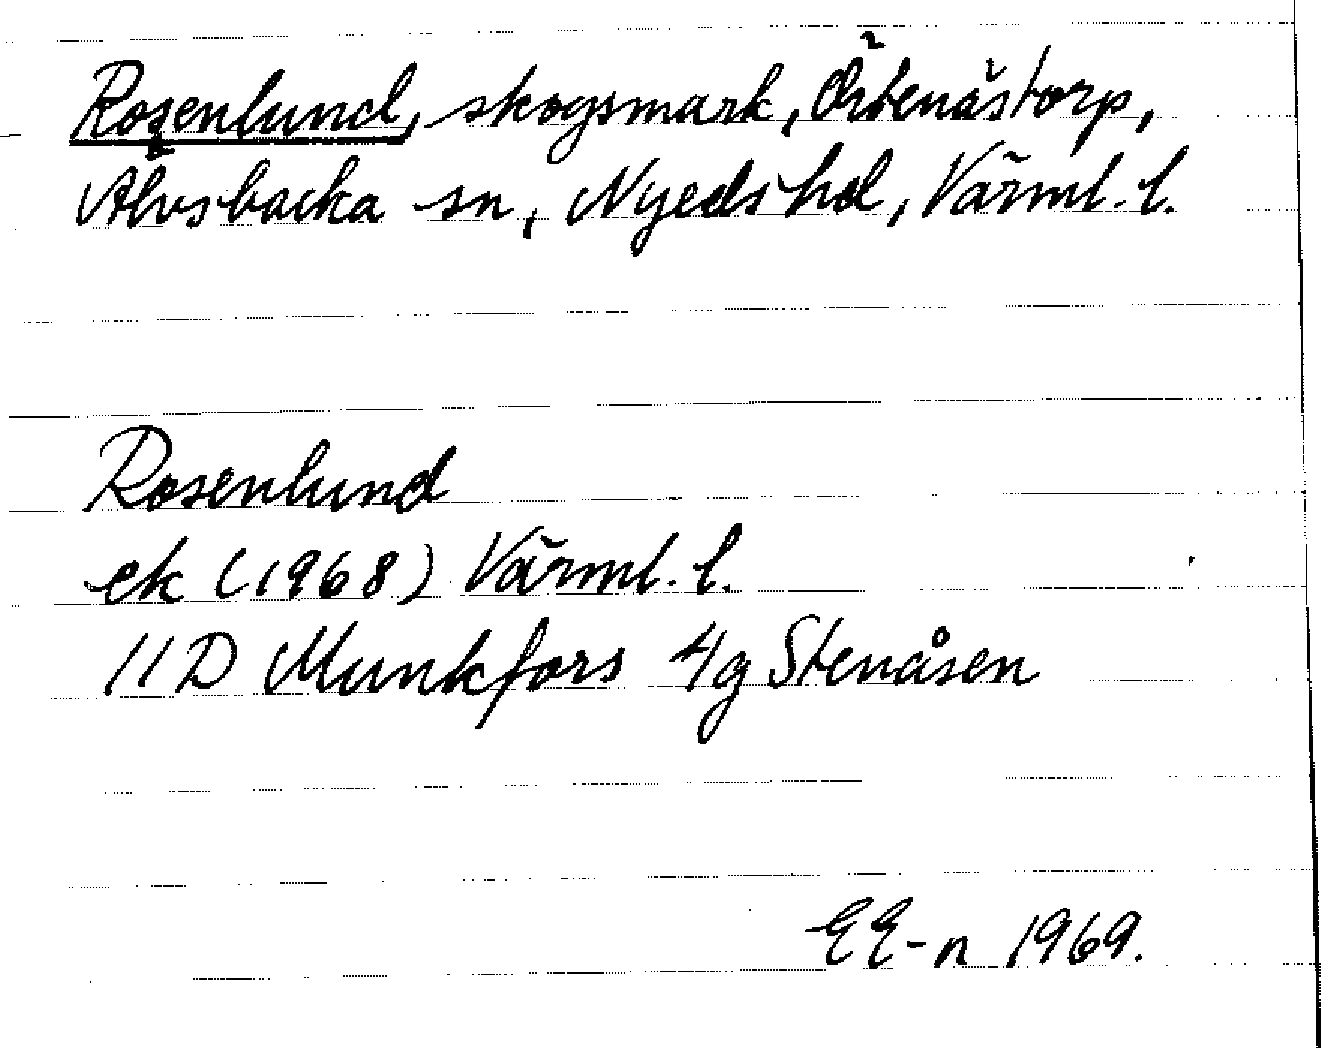 Rosenlund, skogsmark, Örtenästorp,
Älvsbacka sn, Nyeds hd, Värml. l.
Rosenlund
ek (1968) Värml. l.
11D Munkfors 4g Stenåsen
EE-n 1969.